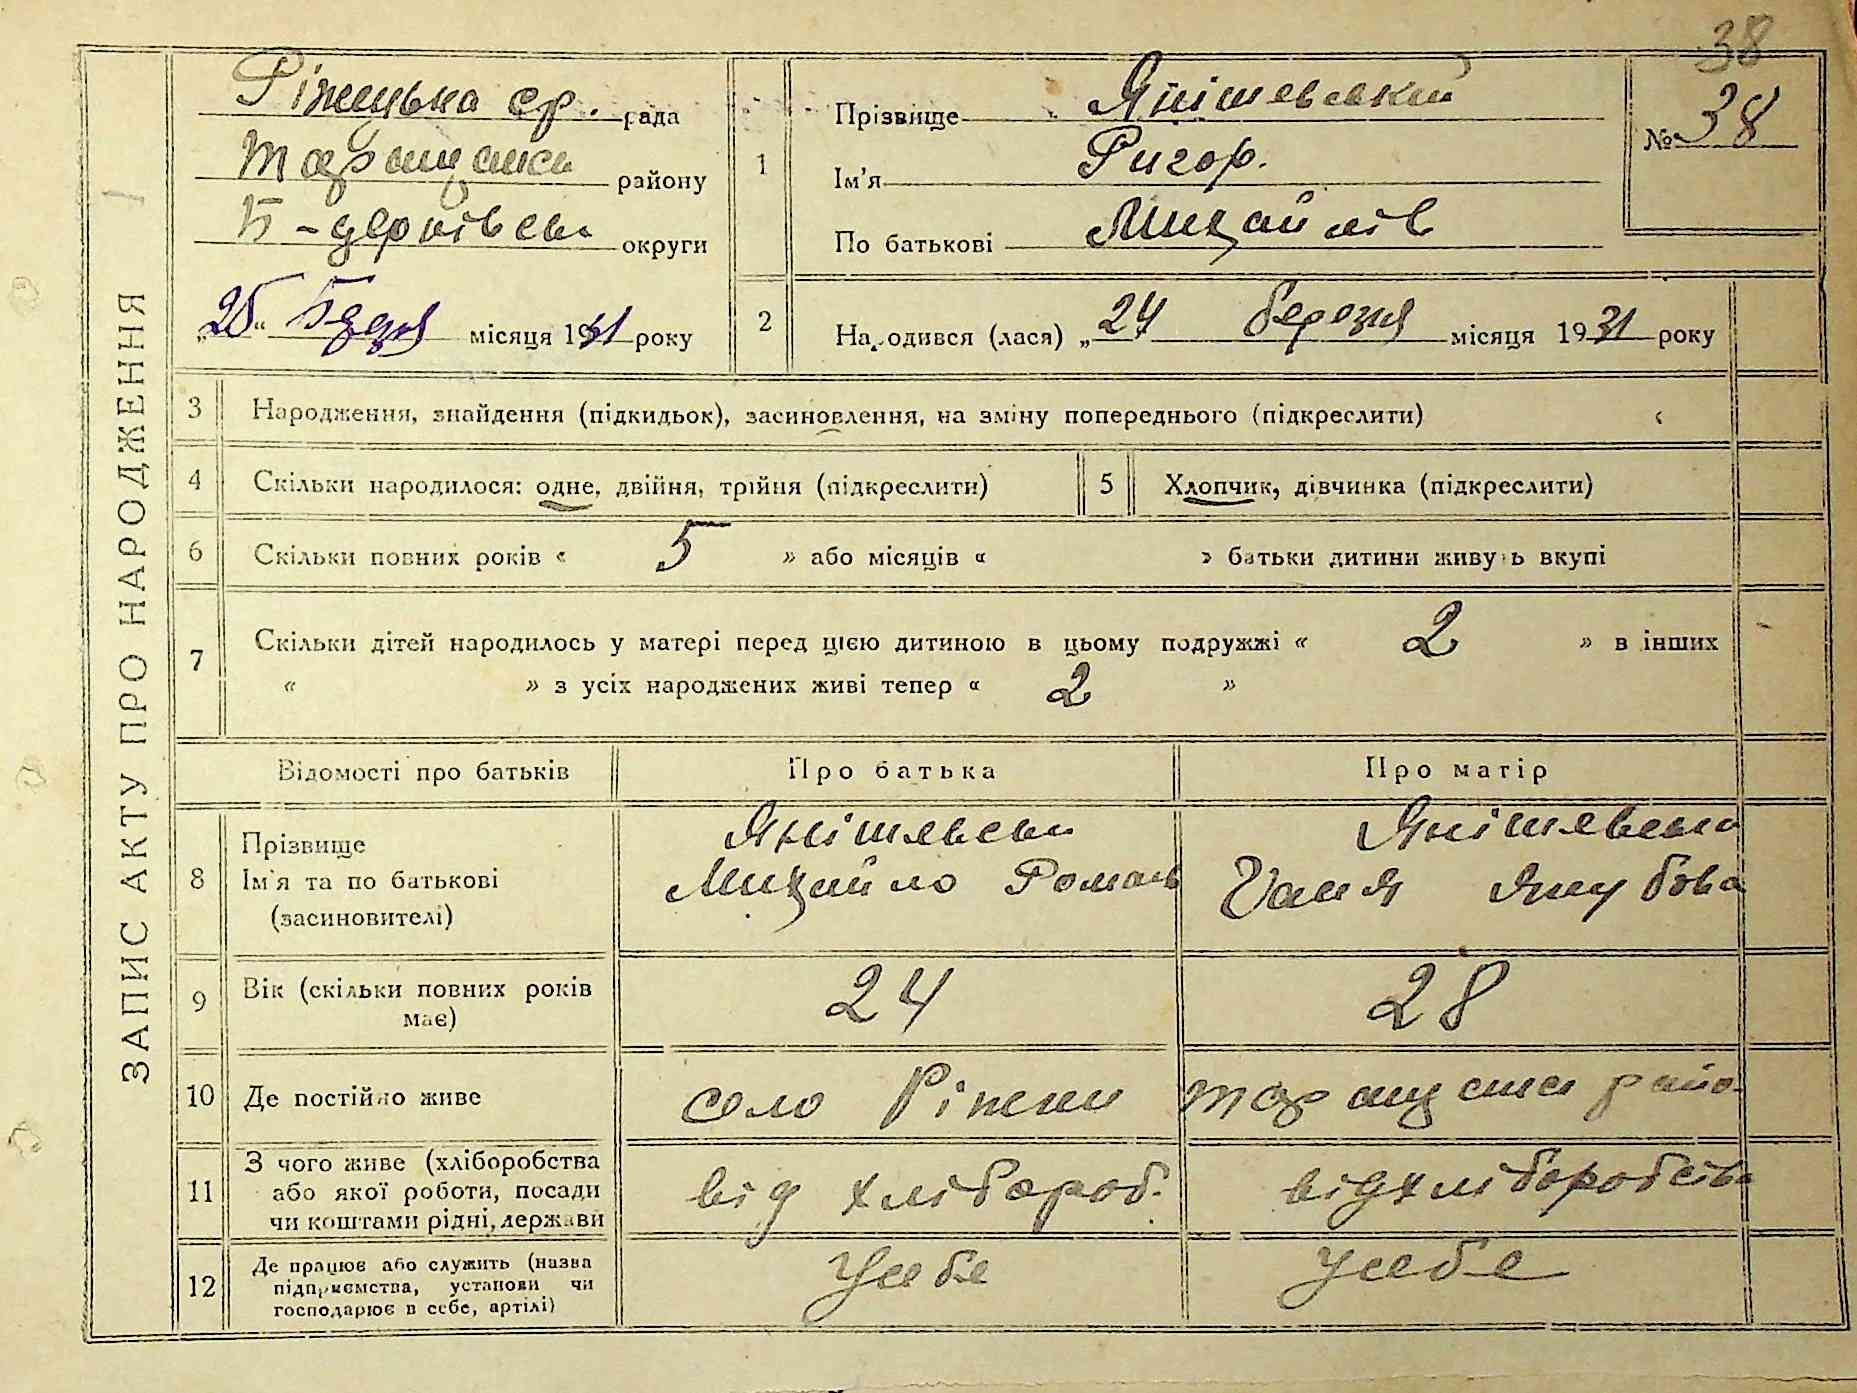 38
ЗАПИС АКТУ ПРО НАРОДЖЕННЯ
Ріжецька ср. рада
Таращанськ району
Б-церківськ округи
„25“ місяця 1931 року
1
Прізвище Янішевський
Ім'я Ригор.
По батькові Михайлів
№ 38
2 Народився (лася) „24 березня місяця 1931 року
3 Народження, знайдення (підкидьок), засиновлення, на зміну попереднього (підкреслити)
4 Скільки народилося: одне, двійня, трійня (підкреслити)
5 Хлопчик, дівчинка (підкреслити)
6 Скільки повних років « 5 » або місяців « » батьки дитини живуть вкупі
7 Скільки дітей народилось у матері перед цією дитиною в цьому подружжі « 2 » в інших
« » з усіх народжених живі тепер « 2 »
Відомості про батьків Про батька Про матір
8 Прізвище
Ім'я та по батькові
(засиновителі)
Янішевськ
Михайло Роман
Янішевська
Ганя Якубова
9 Вік (скільки повних років
має)
24 28
10 Де постійно живе село Ріжки Таращанськ райо
11 З чого живе (хліборобства
або якої роботи, посади
чи коштами рідні, держави
від хлібороб. від хліборобств
12 Де працює або служить (назва
підприємства, установи чи
господарює в себе, артілі)
У себе у себе